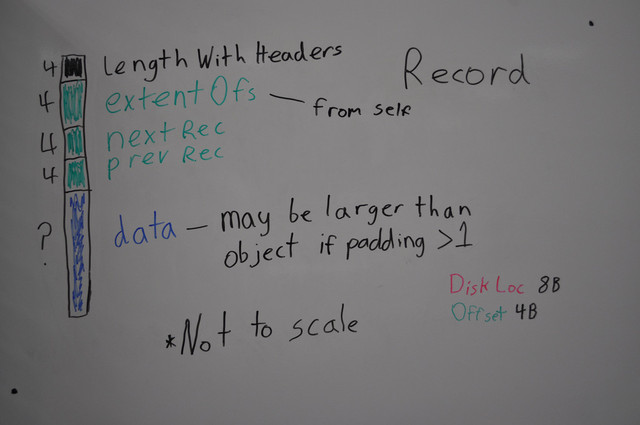 Record
4 Length With Headers
4 extentOfs — from self
4 next Rec
4 prev Rec
? data — may be larger than
object if padding >1
Disk Loc 8B
Offset 4B
*Not to scale